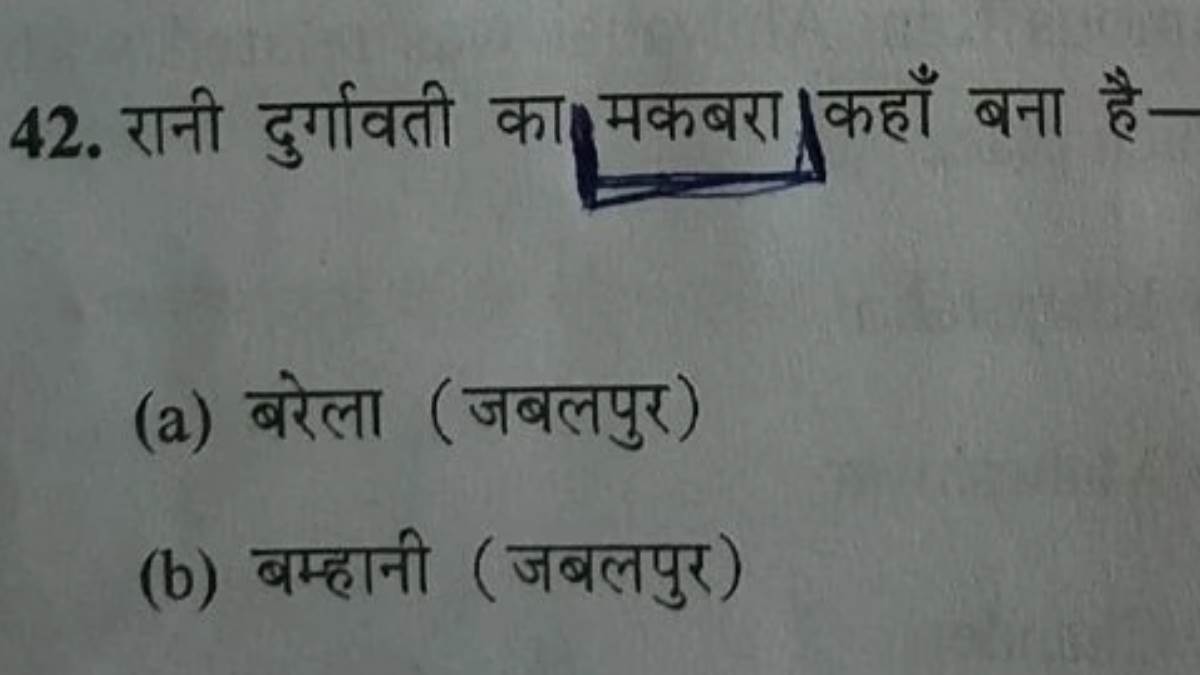 42. रानी दुर्गावती का मकबरा कहाँ बना है—
(a) बरेला (जबलपुर)
(b) बम्हानी (जबलपुर)